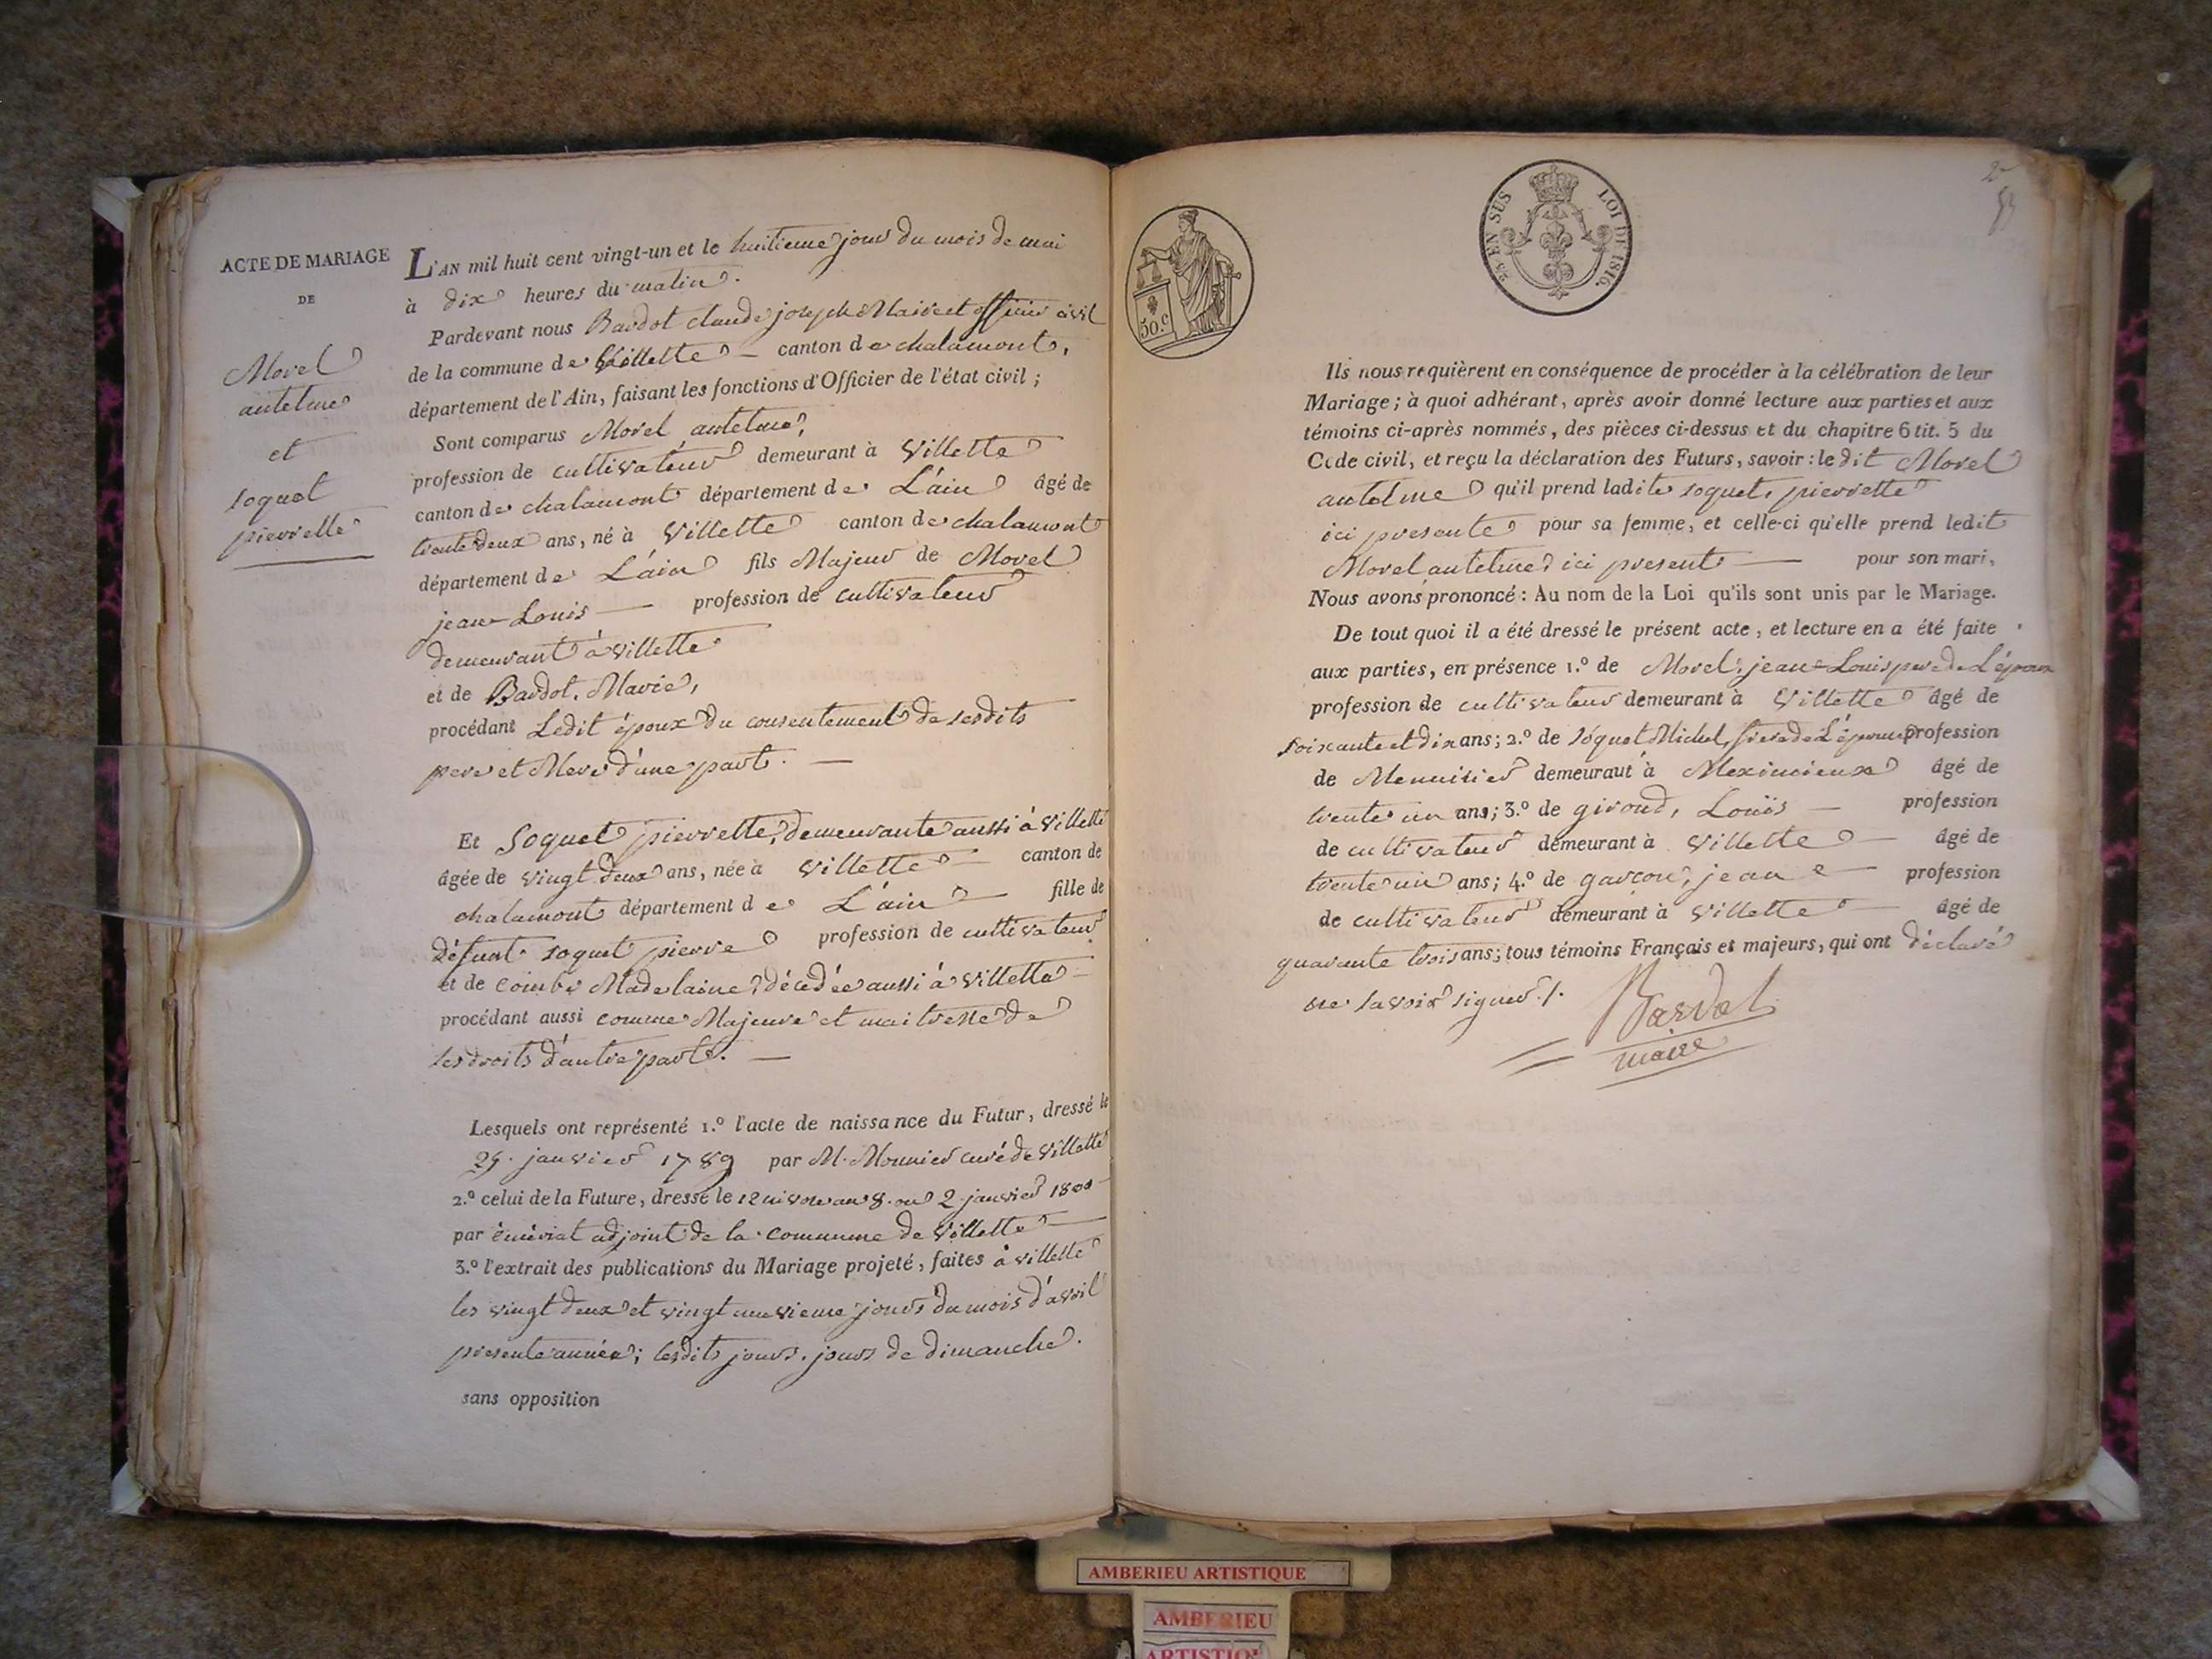 ACTE DE MARIAGE
DE
Morel
antelme
et
soquet
pierrette
L'AN mil huit cent vingt-un et le huitieme jour du mois de mai
à dix heures du matin.
Pardevant nous Bardot claude joseph Maire et officier civil
de la commune de Villette — canton de chalamont,
département de l'Ain, faisant les fonctions d'Officier de l'état civil ;
Sont comparus Morel antelme,
profession de cultivateur demeurant à Villette
canton de chalamont département de L'ain âgé de
trente deux ans, né à Villette canton de chalamont
département de L'ain fils Majeur de Morel
jean-Louis — profession de cultivateur
demeurant à villette
et de Bardot, Marie,
procédant Ledit époux du consentement de sesdits
pere et Mere d'une part. —
Et Soquet pierrette, demeurante aussi à Villette
âgée de vingt deux ans, née à Villette — canton de
chalamont département de L'ain — fille de
défunt soquet pierre profession de cultivateur
et de combe Madelaine, décédée aussi à villette —
procédant aussi comme Majeure et maitresse de
ses droits d'autre part. —
Lesquels ont représenté 1.º l'acte de naissance du Futur, dressé le
29. janvier 1789 par M. Monnier curé de Villette
2.º celui de la Future, dressé le 12 nivose an 8. ou 2 janvier 1800
par adjoint de la commune de Villette —
3.º l'extrait des publications du Mariage projeté, faites à villette
les vingt deux et vingt neuvieme jours du mois d'avril
presente année; lesdits jours, jours de dimanche.
sans opposition
50.c
25 EN SUS LOI DE 1816.
Ils nous requièrent en conséquence de procéder à la célébration de leur
Mariage ; à quoi adhérant, après avoir donné lecture aux parties et aux
témoins ci-après nommés, des pièces ci-dessus et du chapitre 6 tit. 5 du
Code civil, et reçu la déclaration des Futurs, savoir : le dit Morel
antelme qu'il prend ladite soquet, pierrette
ici presente pour sa femme, et celle-ci qu'elle prend ledit
Morel antelme, ici present — pour son mari,
Nous avons prononcé : Au nom de la Loi qu'ils sont unis par le Mariage.
De tout quoi il a été dressé le présent acte, et lecture en a été faite
aux parties, en présence 1.º de Morel, jean-Louis pere de L'époux
profession de cultivateur demeurant à Villette âgé de
soixante et dix ans ; 2.º de soquet Michel, frere de L'épouse profession
de Menuisier demeurant à Meximieux âgé de
trente un ans ; 3.º de giroud, Louis — profession
de cultivateur demeurant à Villette — âgé de
trente un ans ; 4.º de garçon, jean — profession
de cultivateur demeurant à Villette — âgé de
quarante trois ans ; tous témoins Français et majeurs, qui ont déclaré
ne savoir signer ./.
Bardot
maire
AMBERIEU ARTISTIQUE
AMBERIEU
ARTISTIQUE